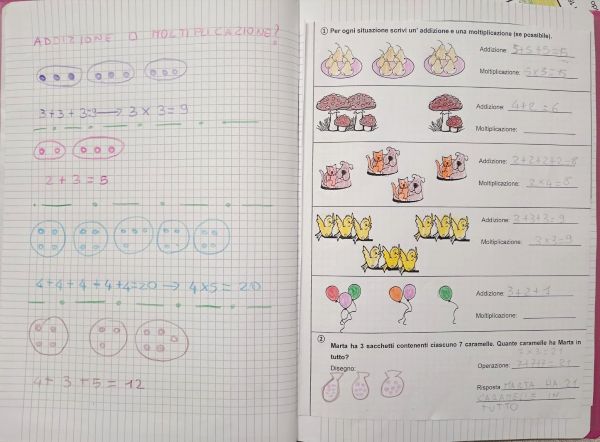 ADDIZIONE O MOLTIPLICAZIONE?
3+3+3=9 → 3 × 3 = 9
2 + 3 = 5
4+4+4+4+4=20 → 4×5 = 20
4+ 3 +5 = 12
① Per ogni situazione scrivi un' addizione e una moltiplicazione (se possibile).
Addizione: 5+5+5=5
Moltiplicazione: 5×3=5
Addizione: 4+2=6
Moltiplicazione:
Addizione: 2+2+2+2=8
Moltiplicazione: 2×4=8
Addizione: 3+3+3=9
Moltiplicazione: 3×3=9
Addizione: 3+2+1
Moltiplicazione:
② Marta ha 3 sacchetti contenenti ciascuno 7 caramelle. Quante caramelle ha Marta in
tutto?
7×3=21
Disegno:
Operazione: 7+7+7=21
Risposta MARTA HA 21
CARAMELLE IN
TUTTO